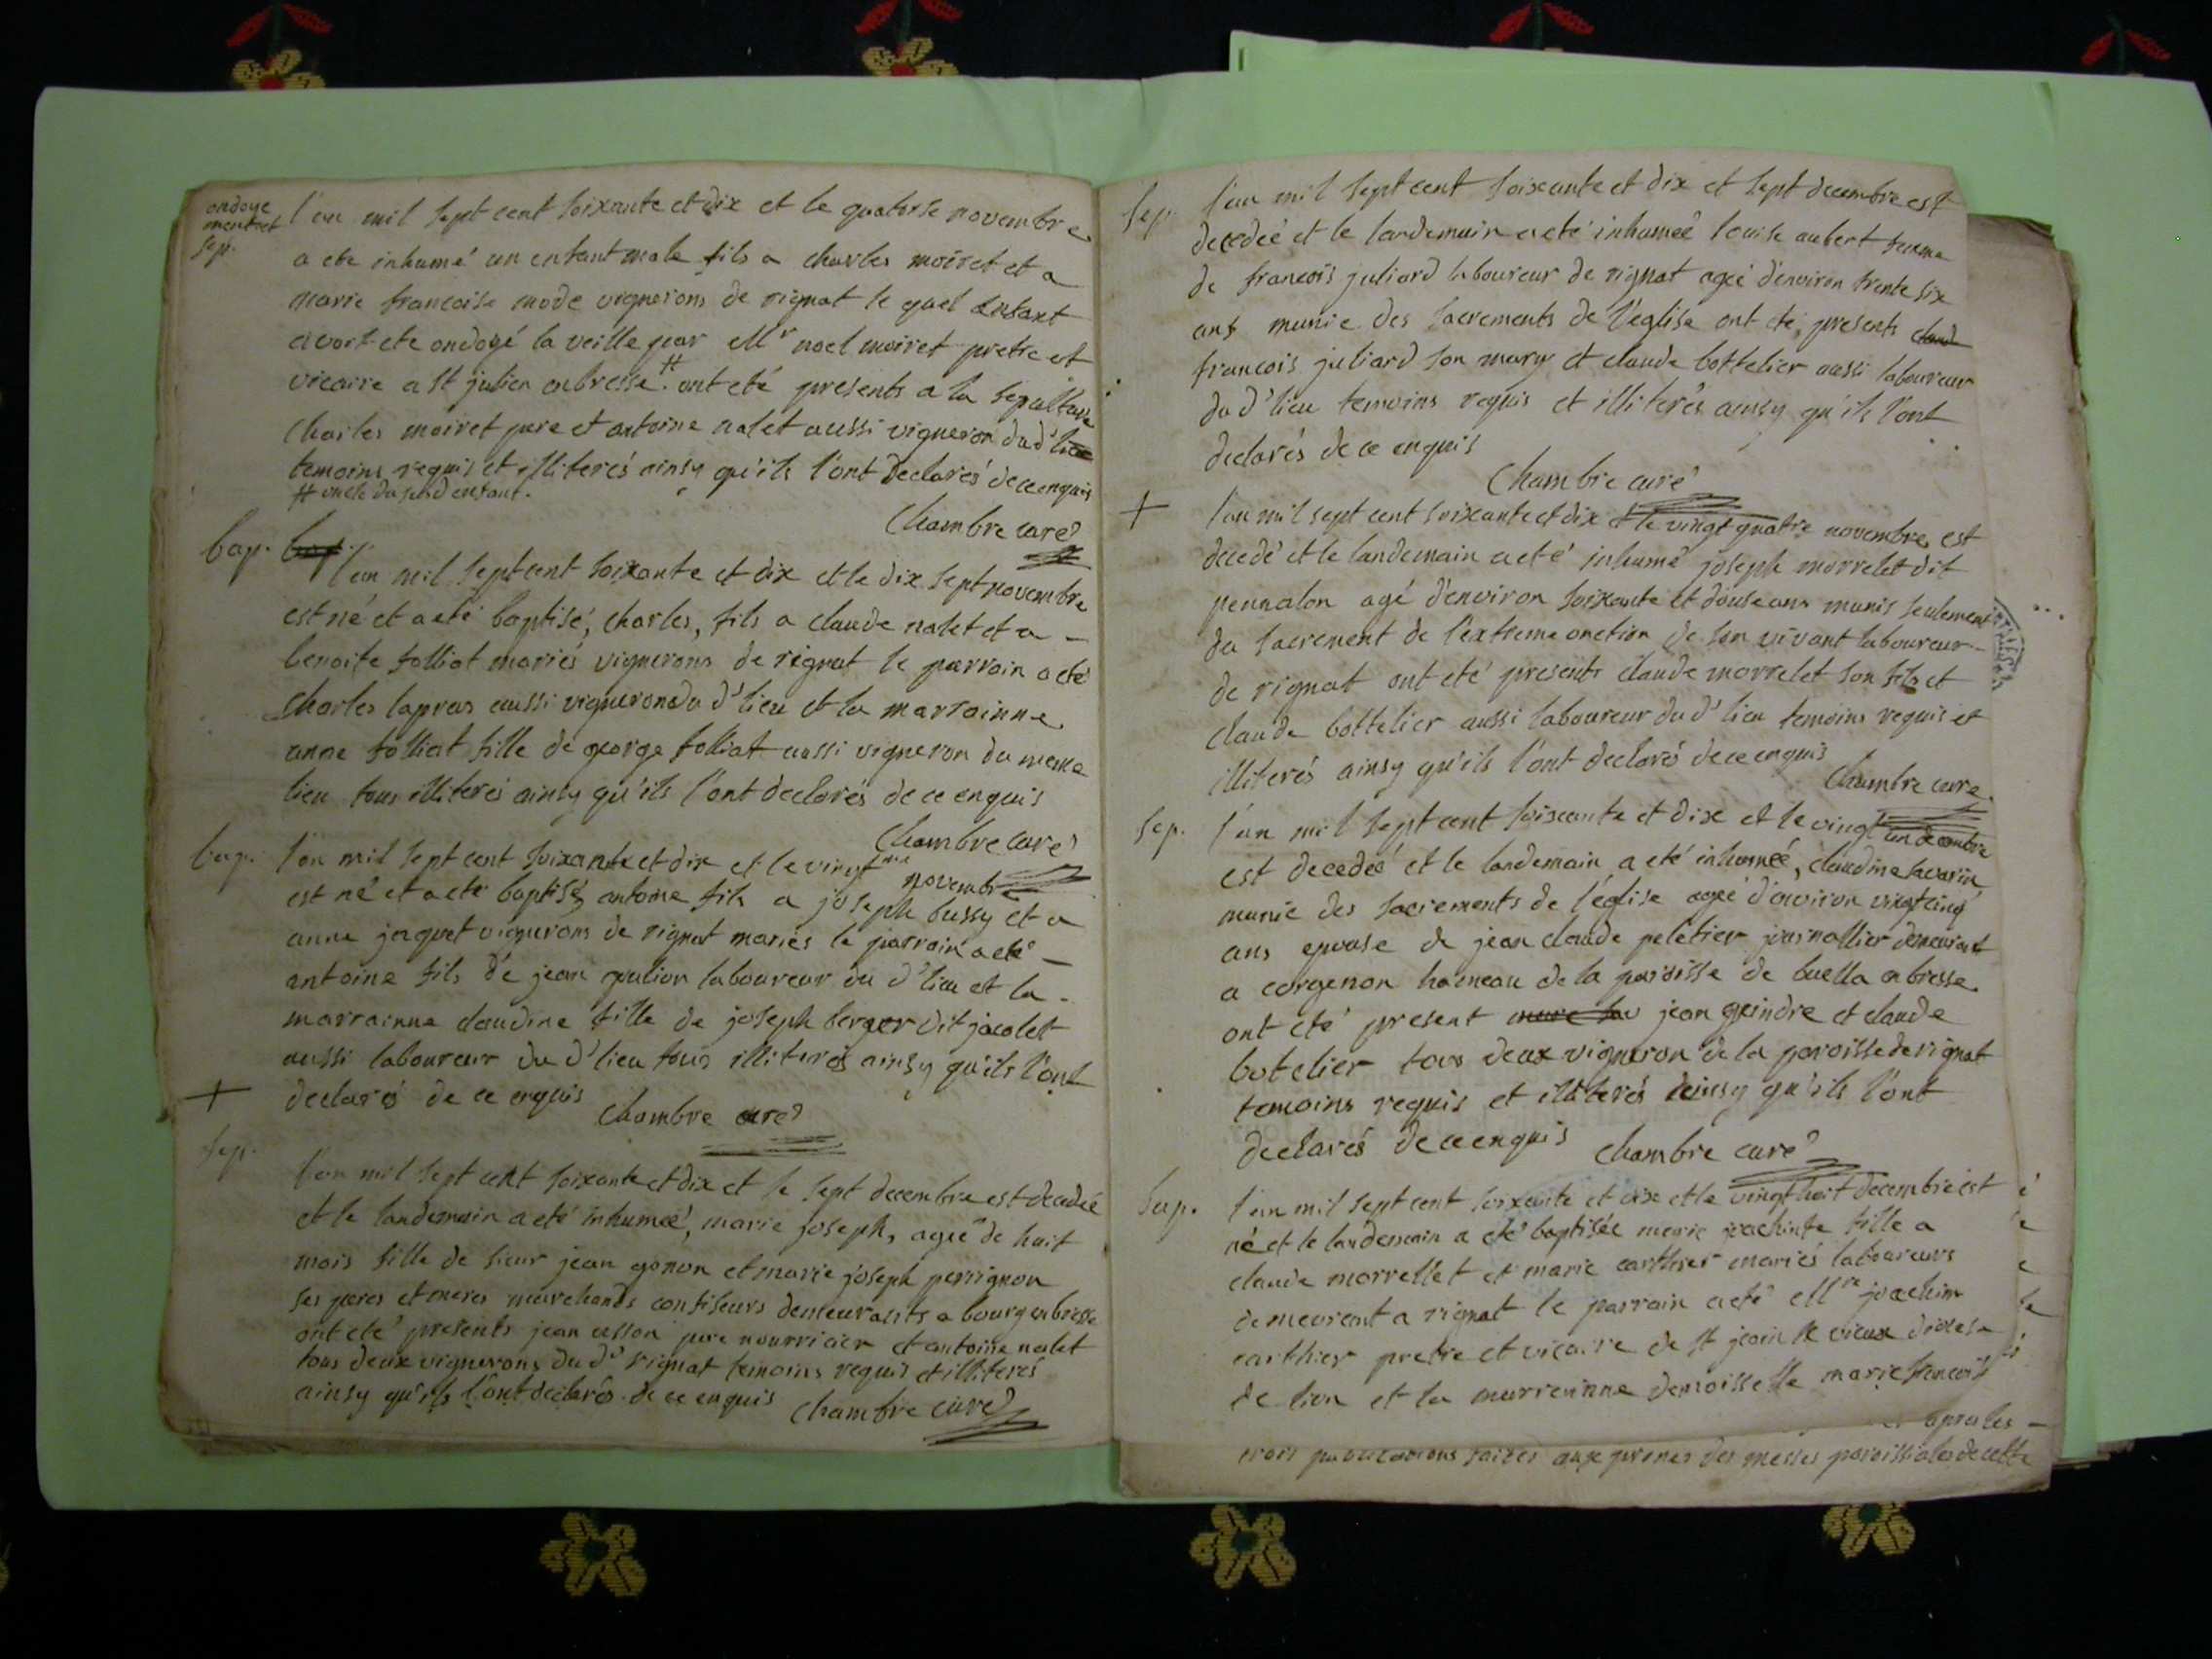 ondoye
ment et
sep.
l'an mil sept cent soixante et dix et le quatorse novembre
a ete inhumé un enfant male fils a charles moiret et a
marie francoise mode vignerons de rignat le quel enfant
avoit ete ondoyé la veille par Mr noel moiret pretre et
vicaire a st julien en bresse # ont eté presents a la sepulture
charles moiret pere et antoine nalet aussi vigneron du d' lieu
temoins requis et illiterés ainsy qu'ils l'ont declarés de ce enquis
# oncle du susd enfant.
Chambre curé
bap. bap.
l'an mil sept cent soixante et dix et le dix sept novembre
est né et a eté baptisé, charles, fils a claude nalet et a -
benoite folliat mariés vignerons de rignat le parrain a eté
charles lapras aussi vigneron du d' lieu et la marrainne
anne folliat fille de george folliat aussi vigneron du meme
lieu tous illiterés ainsy qu'ils l'ont declarés de ce enquis
Chambre curé
bap. l'an mil sept cent soixante et dix et le vingt novembre
est né et a eté baptisé antoine fils a joseph bussy et a
anne jaquet vignerons de rignat mariés le parrain a eté -
antoine fils de jean pulior laboureur du d' lieu et la -
marrainne claudine fille de joseph berger dit jacolet
aussi laboureur du d' lieu tous illiterés ainsy qu'ils l'ont
declarés de ce enquis Chambre curé
+
sep.
l'an mil sept cent soixante et dix et le sept decembre est decedeé
et le landemain a eté inhumeé, marie joseph, ageé de huit
mois fille de sieur jean gonon et marie joseph perrignon
ses peres et meres marchands confiseurs demeurants a bourg en bresse
ont eté presents jean cusson pere nourricier et antoine nalet
tous deux vignerons du d' rignat temoins requis et illiterés
ainsy qu'ils l'ont declarés de ce enquis Chambre curé
sep. l'an mil sept cent soixante et dix et sept decembre est
decedeé et le landemain a eté inhumeé louise aubert femme
de francois juliard laboureur de rignat ageé d'environ trente six
ans munie des sacrements de l'eglise ont eté presents claud
francois juliard son mary et claude bottelier aussi laboureur
du d' lieu temoins requis et illiterés ainsy qu'ils l'ont
declarés de ce enquis
Chambre curé
+ l'an mil sept cent soixante et dix et le vingt quatre novembre est
decedé et le landemain a eté inhumé joseph morrelet dit
pennalon agé d'environ soixante et douse ans munis seulement
du sacrement de l'extreme onction de son vivant laboureur -
de rignat ont eté presents claude morrelet son fils et
claude bottelier aussi laboureur du d' lieu temoins requis et
illiterés ainsy qu'ils l'ont declarés de ce enquis
Chambre curé
sep. l'an mil sept cent soixante et dix et le vingt un decembre
est decedeé et le landemain a eté inhumeé, claudine savarin,
munie des sacrements de l'église ageé d'environ vingt cinq
ans epouse de jean claude peletier journallier demeurant
a corgenon hameau de la paroisse de buella en bresse
ont eté present jean geindre et claude
botelier tous deux vigneron de la paroisse de rignat
temoins requis et illiterés ainsy qu'ils l'ont
declarés de ce enquis Chambre curé
bap. l'an mil sept cent soixante et dix et le vingt huit decembre est
né et le landemain a eté baptisée marie joachinte fille a
claude morrellet et marie carthier mariés laboureurs
demeurant a rignat le parrain a eté Mre joachim
carthier pretre et vicaire de st jean le vieux diocese
de lion et la marrainne demoisselle marie francoise
apres les -
trois publications faites aux prones des messes paroissiales de cette